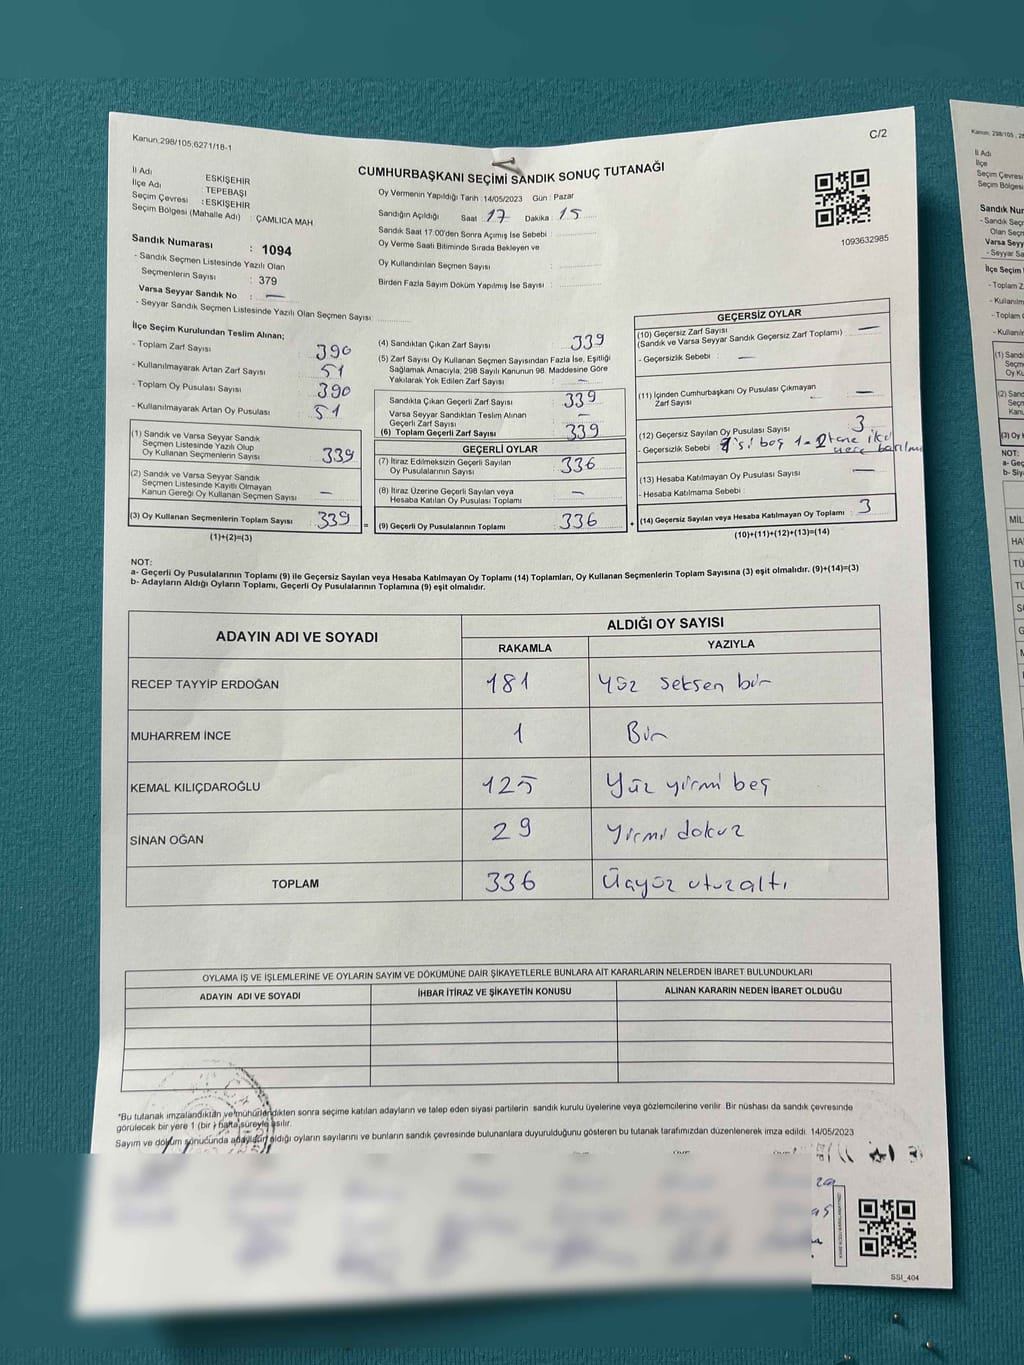 Kanun:298/105;6271/18-1
C/2
CUMHURBAŞKANI SEÇİMİ SANDIK SONUÇ TUTANAĞI
İl Adı : ESKİŞEHİR
İlçe Adı : TEPEBAŞI
Seçim Çevresi : ESKİŞEHİR
Seçim Bölgesi (Mahalle Adı) : ÇAMLICA MAH
Sandık Numarası : 1094
- Sandık Seçmen Listesinde Yazılı Olan
Seçmenlerin Sayısı : 379
Varsa Seyyar Sandık No : —
- Seyyar Sandık Seçmen Listesinde Yazılı Olan Seçmen Sayısı:
Oy Vermenin Yapıldığı Tarih :14/05/2023 Gün : Pazar
Sandığın Açıldığı Saat 17 Dakika 15
Sandık Saat 17:00'den Sonra Açımış İse Sebebi :
Oy Verme Saati Bitiminde Sırada Bekleyen ve
Oy Kullandırılan Seçmen Sayısı :
Birden Fazla Sayım Döküm Yapılmış İse Sayısı :
1093632985
İlçe Seçim Kurulundan Teslim Alınan;
- Toplam Zarf Sayısı : 390
- Kullanılmayarak Artan Zarf Sayısı : 51
- Toplam Oy Pusulası Sayısı : 390
- Kullanılmayarak Artan Oy Pusulası : 51
(1) Sandık ve Varsa Seyyar Sandık
Seçmen Listesinde Yazılı Olup
Oy Kullanan Seçmenlerin Sayısı : 339
(2) Sandık ve Varsa Seyyar Sandık
Seçmen Listesinde Kayıtlı Olmayan
Kanun Gereği Oy Kullanan Seçmen Sayısı : —
(3) Oy Kullanan Seçmenlerin Toplam Sayısı : 339 =
(1)+(2)=(3)
(4) Sandıktan Çıkan Zarf Sayısı : 339
(5) Zarf Sayısı Oy Kullanan Seçmen Sayısından Fazla İse, Eşitliği
Sağlamak Amacıyla, 298 Sayılı Kanunun 98. Maddesine Göre
Yakılarak Yok Edilen Zarf Sayısı : —
Sandıkta Çıkan Geçerli Zarf Sayısı : 339
Varsa Seyyar Sandıktan Teslim Alınan
Geçerli Zarf Sayısı : —
(6) Toplam Geçerli Zarf Sayısı : 339
GEÇERLİ OYLAR
(7) İtiraz Edilmeksizin Geçerli Sayılan
Oy Pusulalarının Sayısı : 336
(8) İtiraz Üzerine Geçerli Sayılan veya
Hesaba Katılan Oy Pusulası Toplamı : —
(9) Geçerli Oy Pusulalarının Toplamı : 336 +
GEÇERSİZ OYLAR
(10) Geçersiz Zarf Sayısı : —
(Sandık ve Varsa Seyyar Sandık Geçersiz Zarf Toplamı)
- Geçersizlik Sebebi : —
(11) İçinden Cumhurbaşkanı Oy Pusulası Çıkmayan
Zarf Sayısı : —
(12) Geçersiz Sayılan Oy Pusulası Sayısı : 3
- Geçersizlik Sebebi boş
(13) Hesaba Katılmayan Oy Pusulası Sayısı : —
- Hesaba Katılmama Sebebi :
(14) Geçersiz Sayılan veya Hesaba Katılmayan Oy Toplamı : 3
(10)+(11)+(12)+(13)=(14)
NOT:
a- Geçerli Oy Pusulalarının Toplamı (9) ile Geçersiz Sayılan veya Hesaba Katılmayan Oy Toplamı (14) Toplamları, Oy Kullanan Seçmenlerin Toplam Sayısına (3) eşit olmalıdır. (9)+(14)=(3)
b- Adayların Aldığı Oyların Toplamı, Geçerli Oy Pusulalarının Toplamına (9) eşit olmalıdır.
ADAYIN ADI VE SOYADI
ALDIĞI OY SAYISI
RAKAMLA YAZIYLA
RECEP TAYYİP ERDOĞAN 181 Yüz seksen bir
MUHARREM İNCE 1 Bir
KEMAL KILIÇDAROĞLU 125 Yüz yirmi beş
SİNAN OĞAN 29 Yirmi dokuz
TOPLAM 336 Üçyüz otuzaltı
OYLAMA İŞ VE İŞLEMLERİNE VE OYLARIN SAYIM VE DÖKÜMÜNE DAİR ŞİKAYETLERLE BUNLARA AİT KARARLARIN NELERDEN İBARET BULUNDUKLARI
ADAYIN ADI VE SOYADI İHBAR İTİRAZ VE ŞİKAYETİN KONUSU ALINAN KARARIN NEDEN İBARET OLDUĞU
*Bu tutanak imzalandıktan ve mühürlendikten sonra seçime katılan adayların ve talep eden siyasi partilerin sandık kurulu üyelerine veya gözlemcilerine verilir. Bir nüshası da sandık çevresinde
görülecek bir yere 1 (bir ) hafta süreyle asılır.
Sayım ve döküm sonucunda adayların aldığı oyların sayılarını ve bunların sandık çevresinde bulunanlara duyurulduğunu gösteren bu tutanak tarafımızdan düzenlenerek imza edildi. 14/05/2023
SSI_404